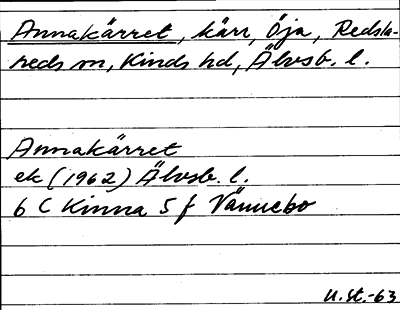 Annakärret, kärr, Öja, Redsla-
reds sn, Kinds hd, Älvsb. l.
Annakärret
ek (1962) Älvsb. l.
6 C Kinna 5 f Vännebo
U.St.-63